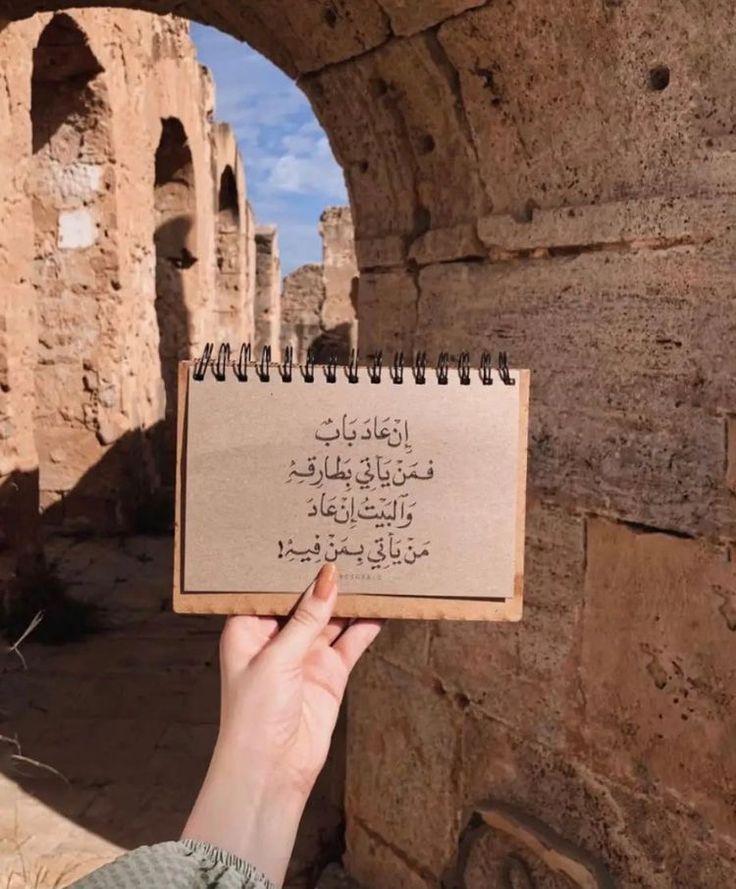 إِنْ عَادَ بَابٌ
فَمَنْ يَأتِي بِطَارِقَهِ
وَالبَيْتُ إِنْ عَادَ
مَنْ يَأتِي بِمَنْ فِيهِ!